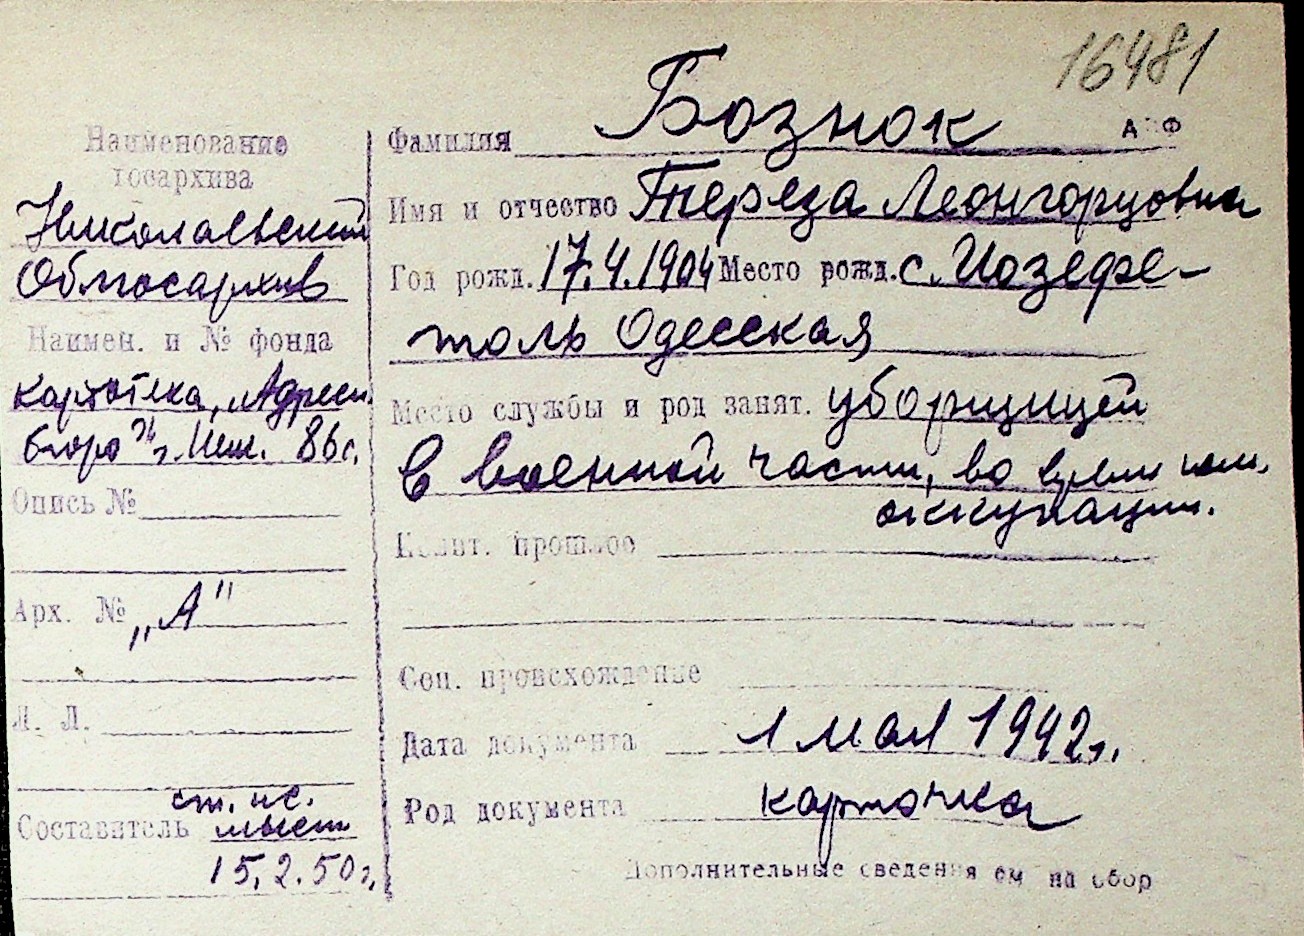 16481
Фамилия Бознок
АЗФ
Имя и отчество Тереза Леонгорцовна
Год рожд. 17.4.1904 Место рожд. с. Иозефс-
толь Одесская
Место службы и род занят. уборщицей
в военной части, во время нем.
оккупации.
прошлое
Соц. происхождение
Дата документа 1 мая 1942 г.
Род документа карточка
Дополнительные сведения см на обор
Наименование
госархива
Николаевский
Облгосархив
Наимен. и № фонда
картотека „Адресн.
бюро" г. Ник. 86 с.
Опись №
Арх. № „А"
Л. Л.
Составитель ст. н.с.
15.2.50 г.